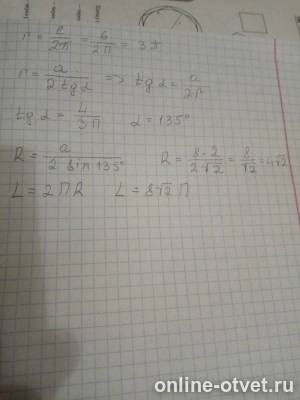 r = e/2π = 6/2π = 3π
r = a/2tgα => tgα = a/2r
tgα = 4/3π α = 135°
R = a/2sin135° R = 8·2/2√2 = 8/√2 = 4√2
L = 2πR L = 8√2π
online-otvet.ru